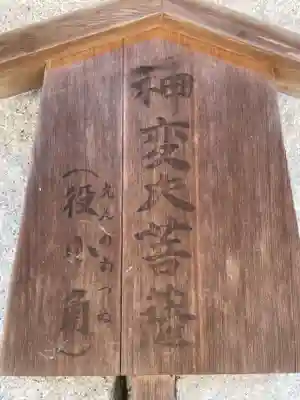 神変大菩薩
えんのおづぬ
（役小角）